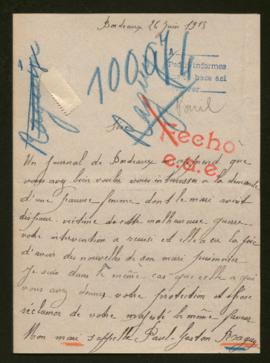 Bordeaux 26 Juin 1915
100,974
Pedir informes
hace sei
Paul
Sire
Hecho
e.d.e.
Un journal de Bordeaux apprend que
vous avez bien voulu vous intéresser à la demande
d'une pauvre femme dont le mari avait
disparu victime de cette malheureuse guerre
votre intervention a réussi et elle a eu la joie
d'avoir des nouvelles de son mari prisonnier
Je suis dans le même cas que celle à qui
vous avez donné votre protection et j'ose
réclamer de votre majesté la même faveur
Mon mari s'appelle Paul Gaston